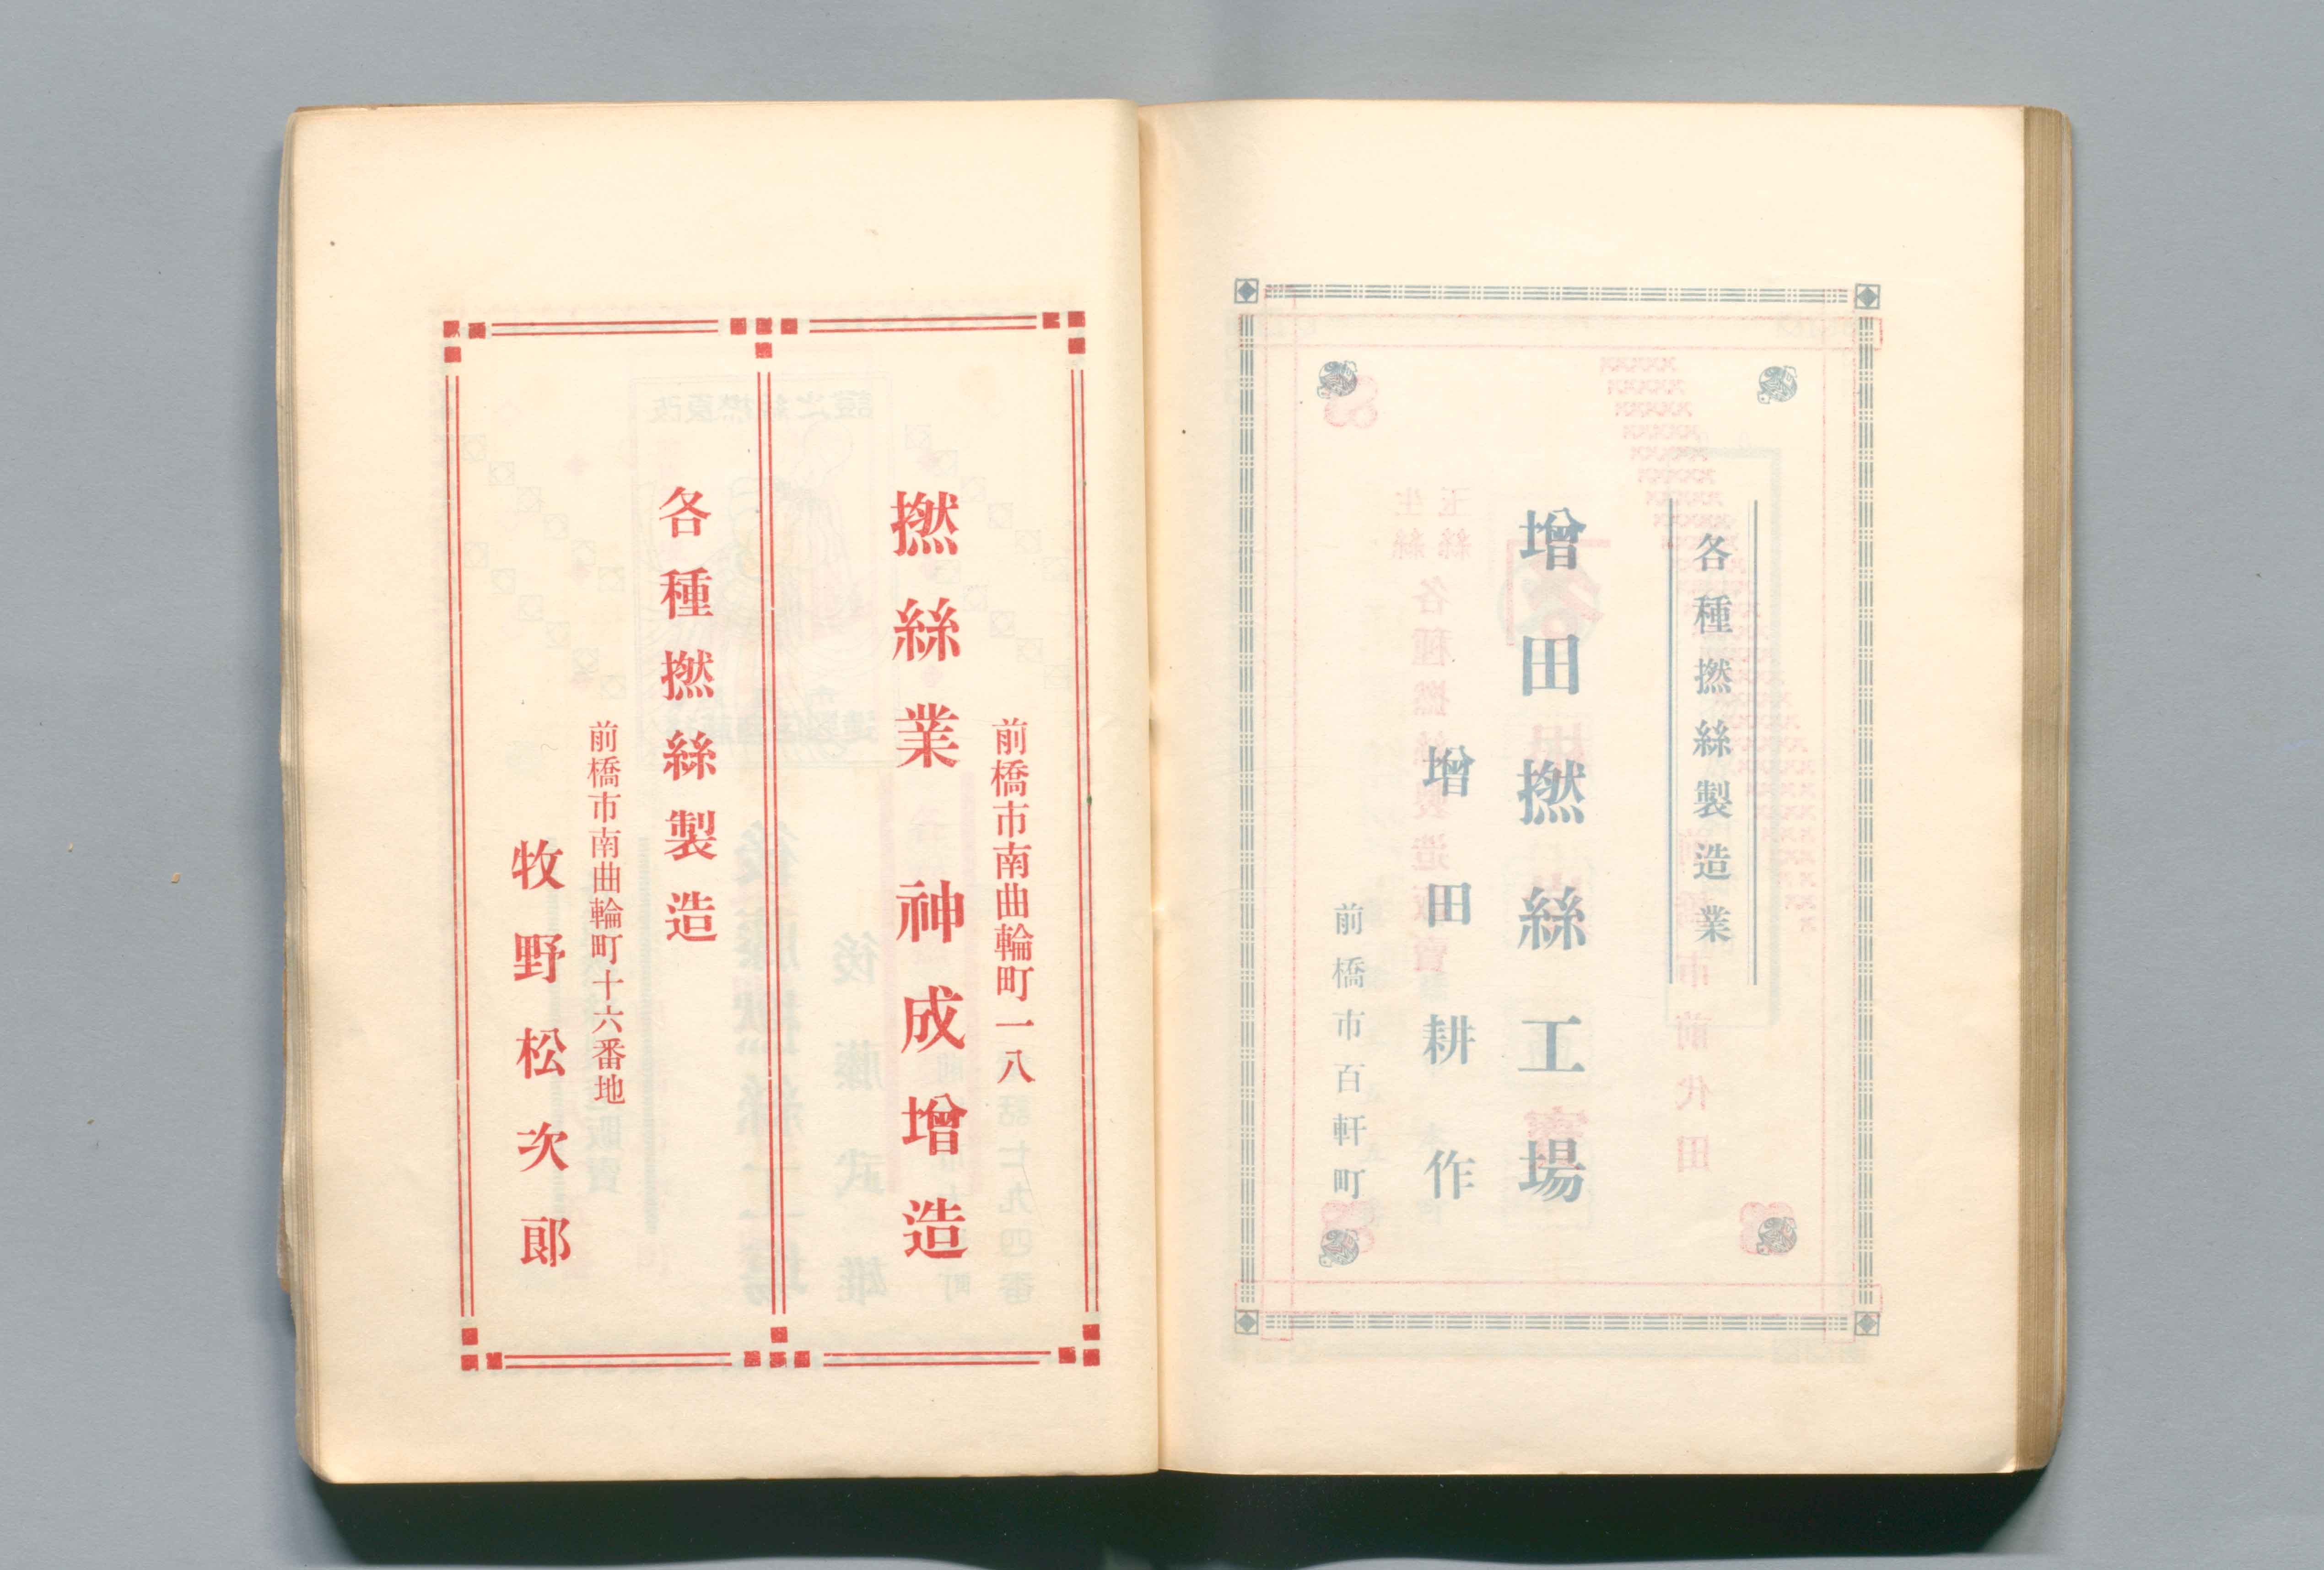 各種撚絲製造業
增田撚絲工場
增田耕作
前橋市百軒町
前橋市南曲輪町一八
撚絲業 神成增造
各種撚絲製造
前橋市南曲輪町十六番地
牧野松次郞